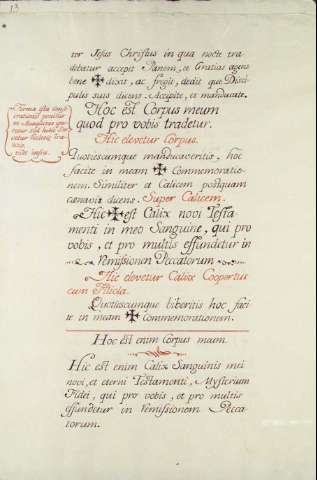 13
ter Jesus Christus in qua nocte tra-
debatur accepit Panem, et Gratias agens
bene ✠ dixit, ac fregit, dedit que Disci-
pulis suis dicens. Accipite, et manducate.
Hoc est Corpus meum
quod pro vobis tradetur.
Hic elevetur Corpus.
Quotiescumque manducaveritis, hoc
facite in meam ✠ Commemoratio-
nem. Similiter et Calicem postquam
cœnavit dicens. Super Calicem.
Hic ✠ est Calix novi Testa
menti in meo Sanguine, qui pro
vobis, et pro multis effundetur in
Remissionem Peccatorum
Hic elevetur Calix Coopertus
cum Filiola.
Quotiescumque biberitis hoc faci
te in meam ✠ Commemorationem.
Hoc est enim Corpus meum.
Hic est enim Calix Sanguinis mei
novi, et eterni Testamenti, Mysterium
Fidei, qui pro vobis, et pro multis
effundetur in Remissionem Pecca-
torum.
Forma ista conse
crationis ponitur